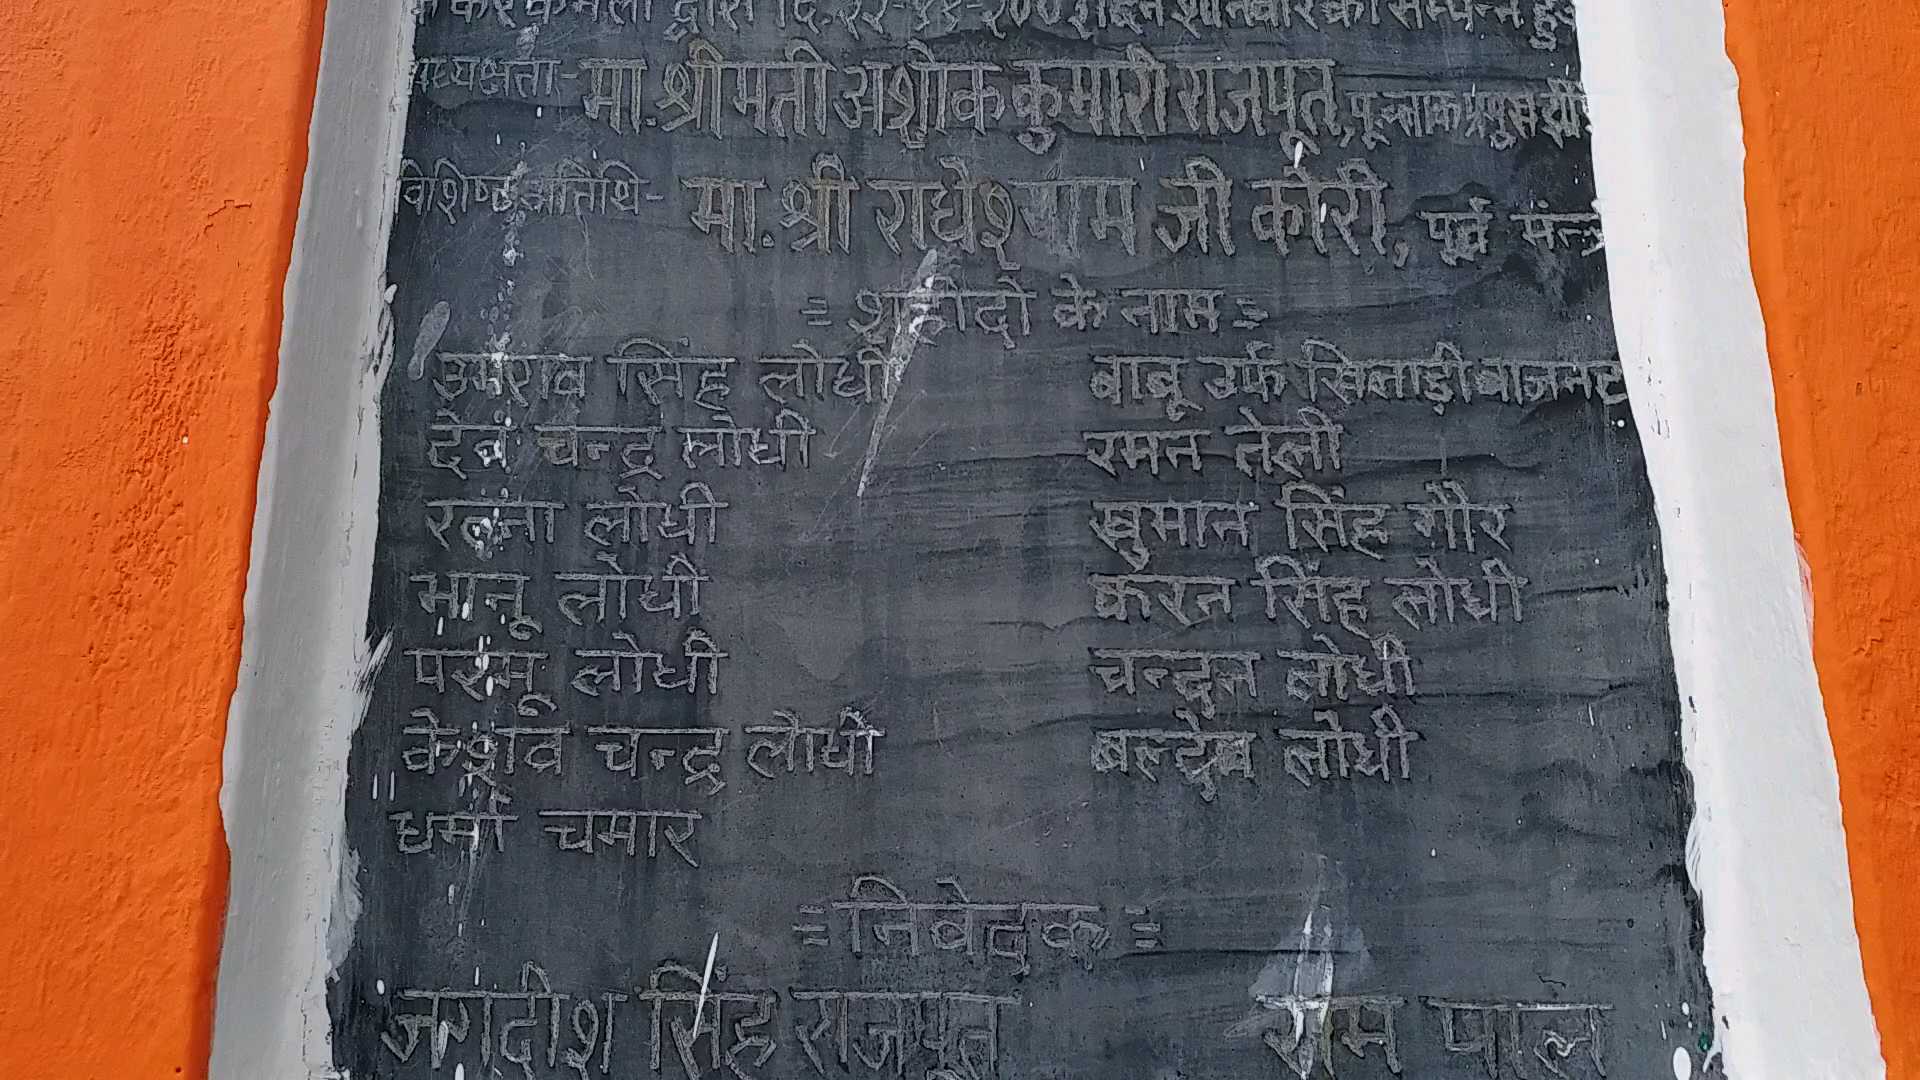 कर कमलो द्वारा दि. २२-११-२००१ दिन शनिवार को सम्पन्न हुई
अध्यक्षता- मा. श्रीमती अशोक कुमारी राजपूत, पू. ब्लाक प्रमुख
विशिष्ट अतिथि- मा. श्री राधेश्याम जी कोरी, पूर्व मंत्री
= शहीदो के नाम =
उमराव सिंह लोधी बाबू उर्फ खिलाड़ी बाजनट
देव चन्द्र लोधी रमन तेली
रतना लोधी खुमान सिंह गौर
भानू लोधी करन सिंह लोधी
परमू लोधी चन्दन लोधी
केशव चन्द्र लोधी बल्देव लोधी
धर्मा चमार
= निवेदक =
जगदीश सिंह राजपूत राम पाल